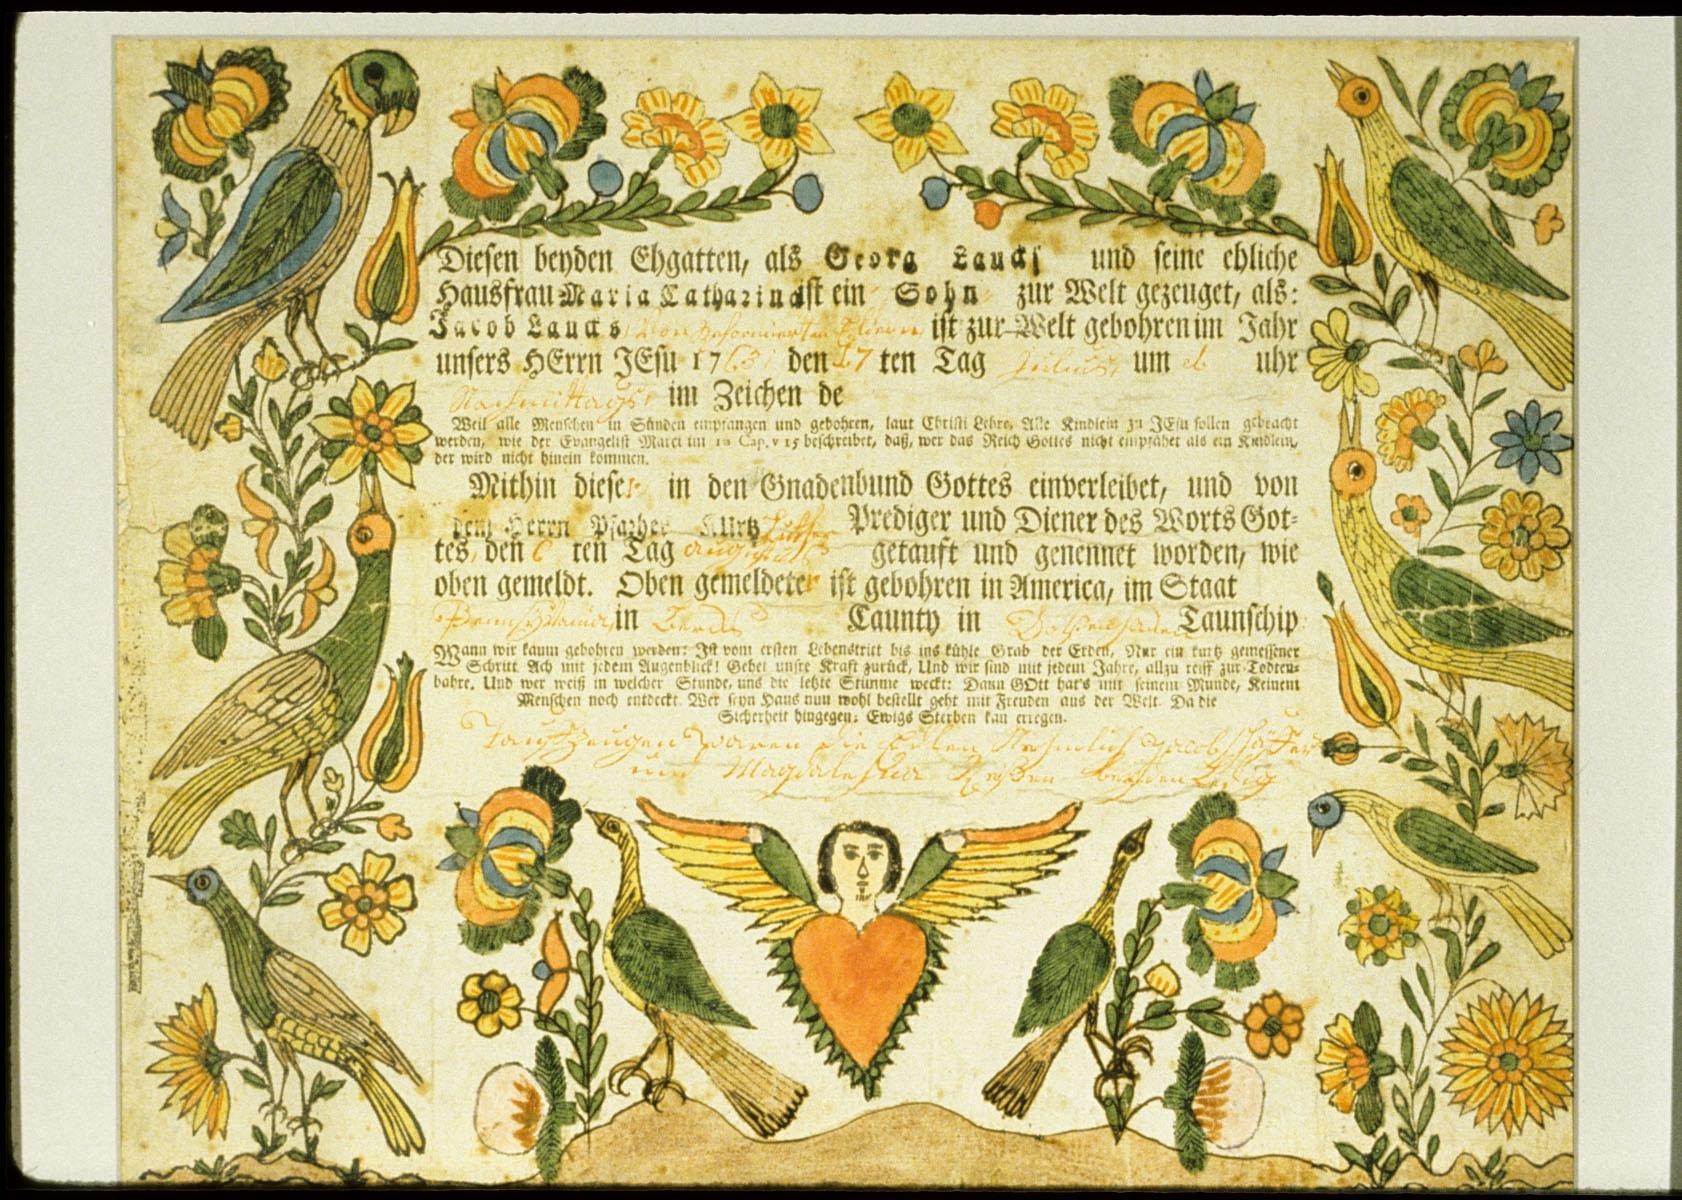 Diesen beyden Ehgatten, als Georg Laucks und seine ehliche
Hausfrau Maria Catharina ist ein Sohn zur Welt gezeuget, als:
Jacob Laucks Von Reformierten Eldern ist zur Welt gebohren im Jahr
unsers HErrn JEsu 1763, den 17 ten Tag Julius, um uhr
Nachmittags, im Zeichen de
Weil alle Menschen in Sünden empfangen und gebohren, laut Christi Lehre, Alle Kindlein zu JEsu sollen gebracht
werden, wie der Evangelist Marci im 10 Cap. v 15 beschreibet, daß, wer das Reich Gottes nicht empfähet als ein Kindlein,
der wird nicht hinein kommen.
Mithin dieser in den Gnadenbund Gottes einverleibet, und von
dem Herrn Pfarher Kurtz Prediger und Diener des Worts Got-
tes, den 6 ten Tag augustus getauft und genennet worden, wie
oben gemeldt. Oben gemeldeter ist gebohren in America, im Staat
in Caunty in Taunschip:
Wann wir kaum gebohren werden: Ist vom ersten Lebenstritt bis ins kühle Grab der Erden, Nur ein kurtz gemessener
Schritt Ach mit jedem Augenblick! Gehet unsre Kraft zurück, Und wir sind mit jedem Jahre, allzu reiff zur Todten-
bahre. Und wer weiß in welcher Stunde, uns die letzte Stimme weckt: Dann GOtt hat's mit seinem Munde, Keinem
Menschen noch entdeckt. Wer seyn Haus nun wohl bestellt geht mit Freuden aus der Welt. Da die
Sicherheit hingegen: Ewigs Sterben kan erregen.
Taufzeugen waren die Jacob
und Magdalena